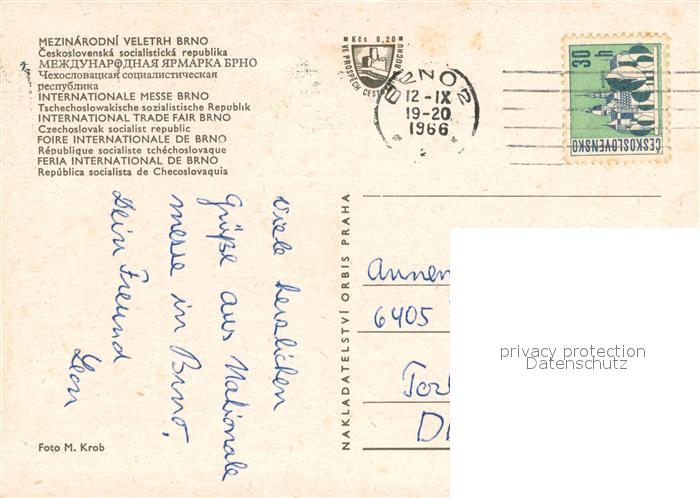 MEZINÁRODNÍ VELETRH BRNO
Československá socialistická republika
МЕЖДУНАРОДНАЯ ЯРМАРКА БРНО
Чехословацкая социалистическая
республика
INTERNATIONALE MESSE BRNO
Tschechoslowakische sozialistische Republik
INTERNATIONAL TRADE FAIR BRNO
Czechoslovak socialist republic
FOIRE INTERNATIONALE DE BRNO
République socialiste tchéchoslovaque
FERIA INTERNATIONAL DE BRNO
República socialista de Checoslovaquia
Kčs 0,20
VE PROSPĚCH CEST. RUCHU
BRNO 2
12-IX
19-20
1966
30 h
ČESKOSLOVENSKO
Viele herzlichen
Grüße aus Nationale
messe in Brno,
Dein Freund
Leon
NAKLADATELSTVÍ ORBIS PRAHA
Annem
6405
privacy protection
Datenschutz
Foto M. Krob